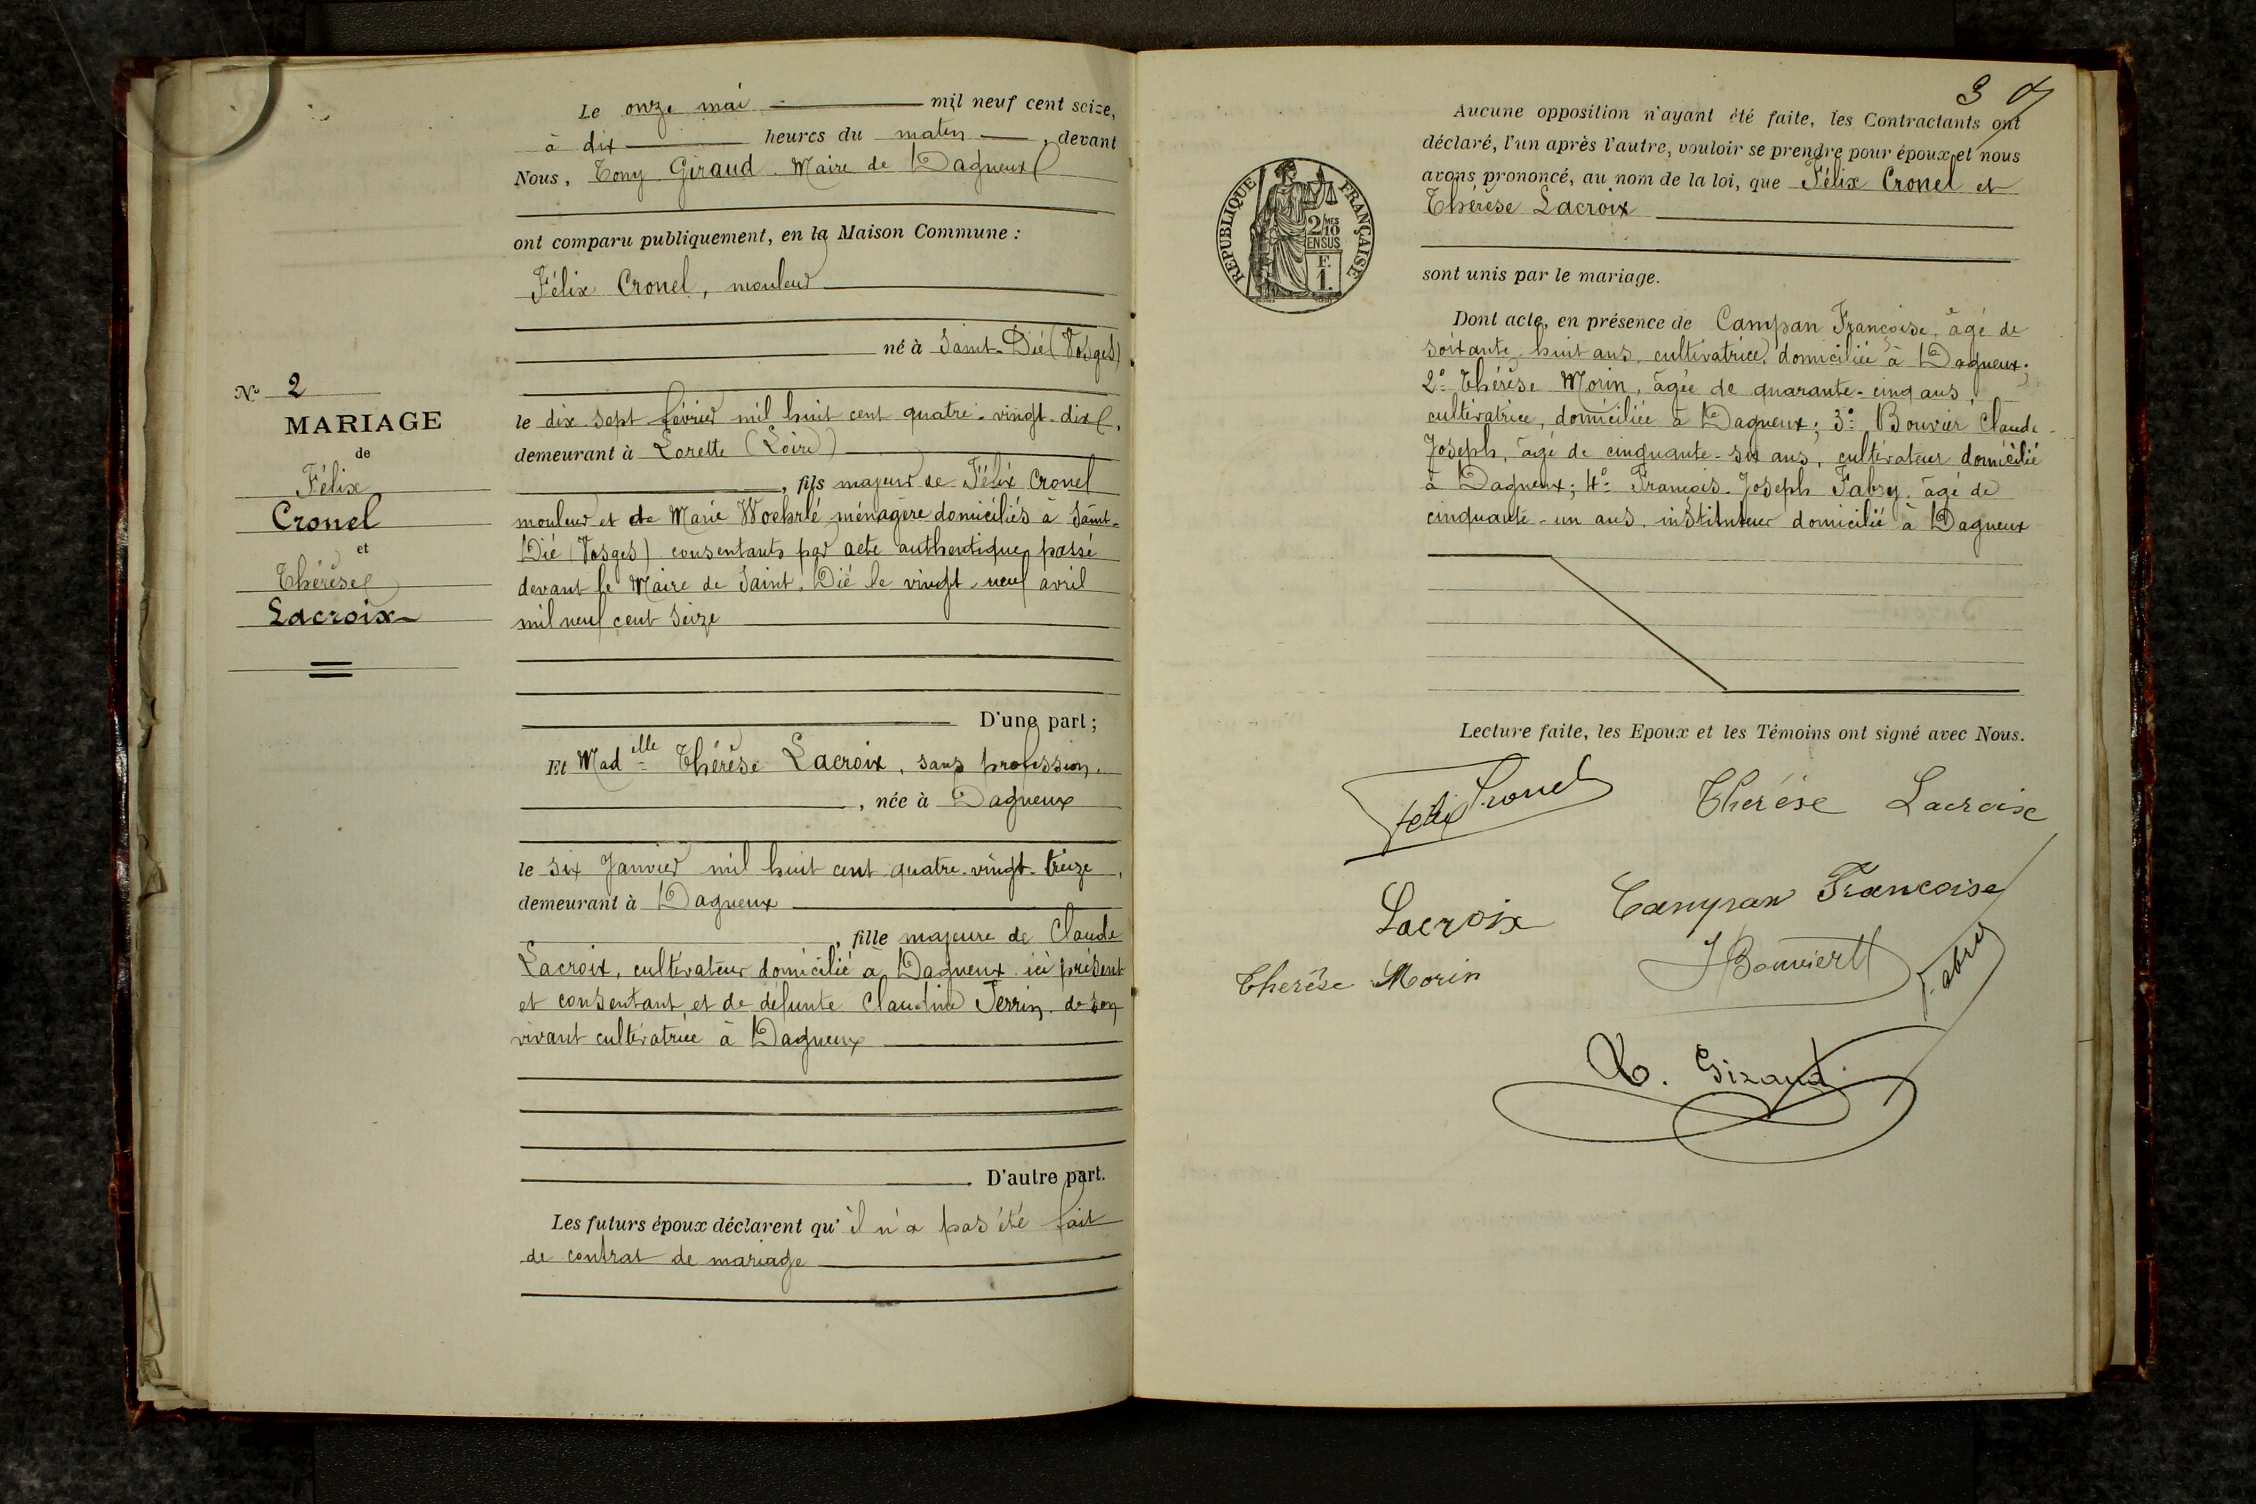 Le onze mai mil neuf cent seize,
à dix heures du matin, devant
Nous, Tony Giraud Maire de Dagneux
ont comparu publiquement, en la Maison Commune :
Félix Cronel, mouleur
né à Saint-Dié (Vosges)
le dix sept février mil huit cent quatre-vingt-dix,
demeurant à Lorette (Loire)
, fils majeur de Félix Cronel
mouleur et de Marie Woehrlé ménagère domiciliés à Saint-
Dié (Vosges) consentants par acte authentique passé
devant le Maire de Saint-Dié le vingt-neuf avril
mil neuf cent seize
D'une part ;
Et Mad elle Thérèse Lacroix, sans profession
, née à Dagneux
le six Janvier mil huit cent quatre-vingt-treize,
demeurant à Dagneux
, fille majeure de Claude
Lacroix, cultivateur domicilié à Dagneux ici présent
et consentant et de défunte Claudine Perrin de son
vivant cultivatrice à Dagneux
D'autre part.
Les futurs époux déclarent qu'il n'a pas été fait
de contrat de mariage
N° 2
MARIAGE
de
Félix
Cronel
et
Thérèse
Lacroix
3
Aucune opposition n'ayant été faite, les Contractants ont
déclaré, l'un après l'autre, vouloir se prendre pour époux et nous
avons prononcé, au nom de la loi, que Félix Cronel et
Thérèse Lacroix
sont unis par le mariage.
Dont acte, en présence de Campan Françoise, âgé de
soixante-huit ans, cultivatrice, domiciliée à Dagneux ;
2° Thérèse Morin, âgée de quarante-cinq ans,
cultivatrice, domiciliée à Dagneux ; 3° Bouvier Claude-
Joseph, âgé de cinquante-six ans, cultivateur domicilié
à Dagneux ; 4° François-Joseph Fabry, âgé de
cinquante-un ans, instituteur domicilié à Dagneux
REPUBLIQUE FRANÇAISE
2/10 MES
EN SUS
F.
1.
Lecture faite, les Epoux et les Témoins ont signé avec Nous.
Felix Cronel
Thérése Lacroix
Lacroix
Campan Francoise
Therèse Morin
J Bouvier
F. abry
T. Giraud